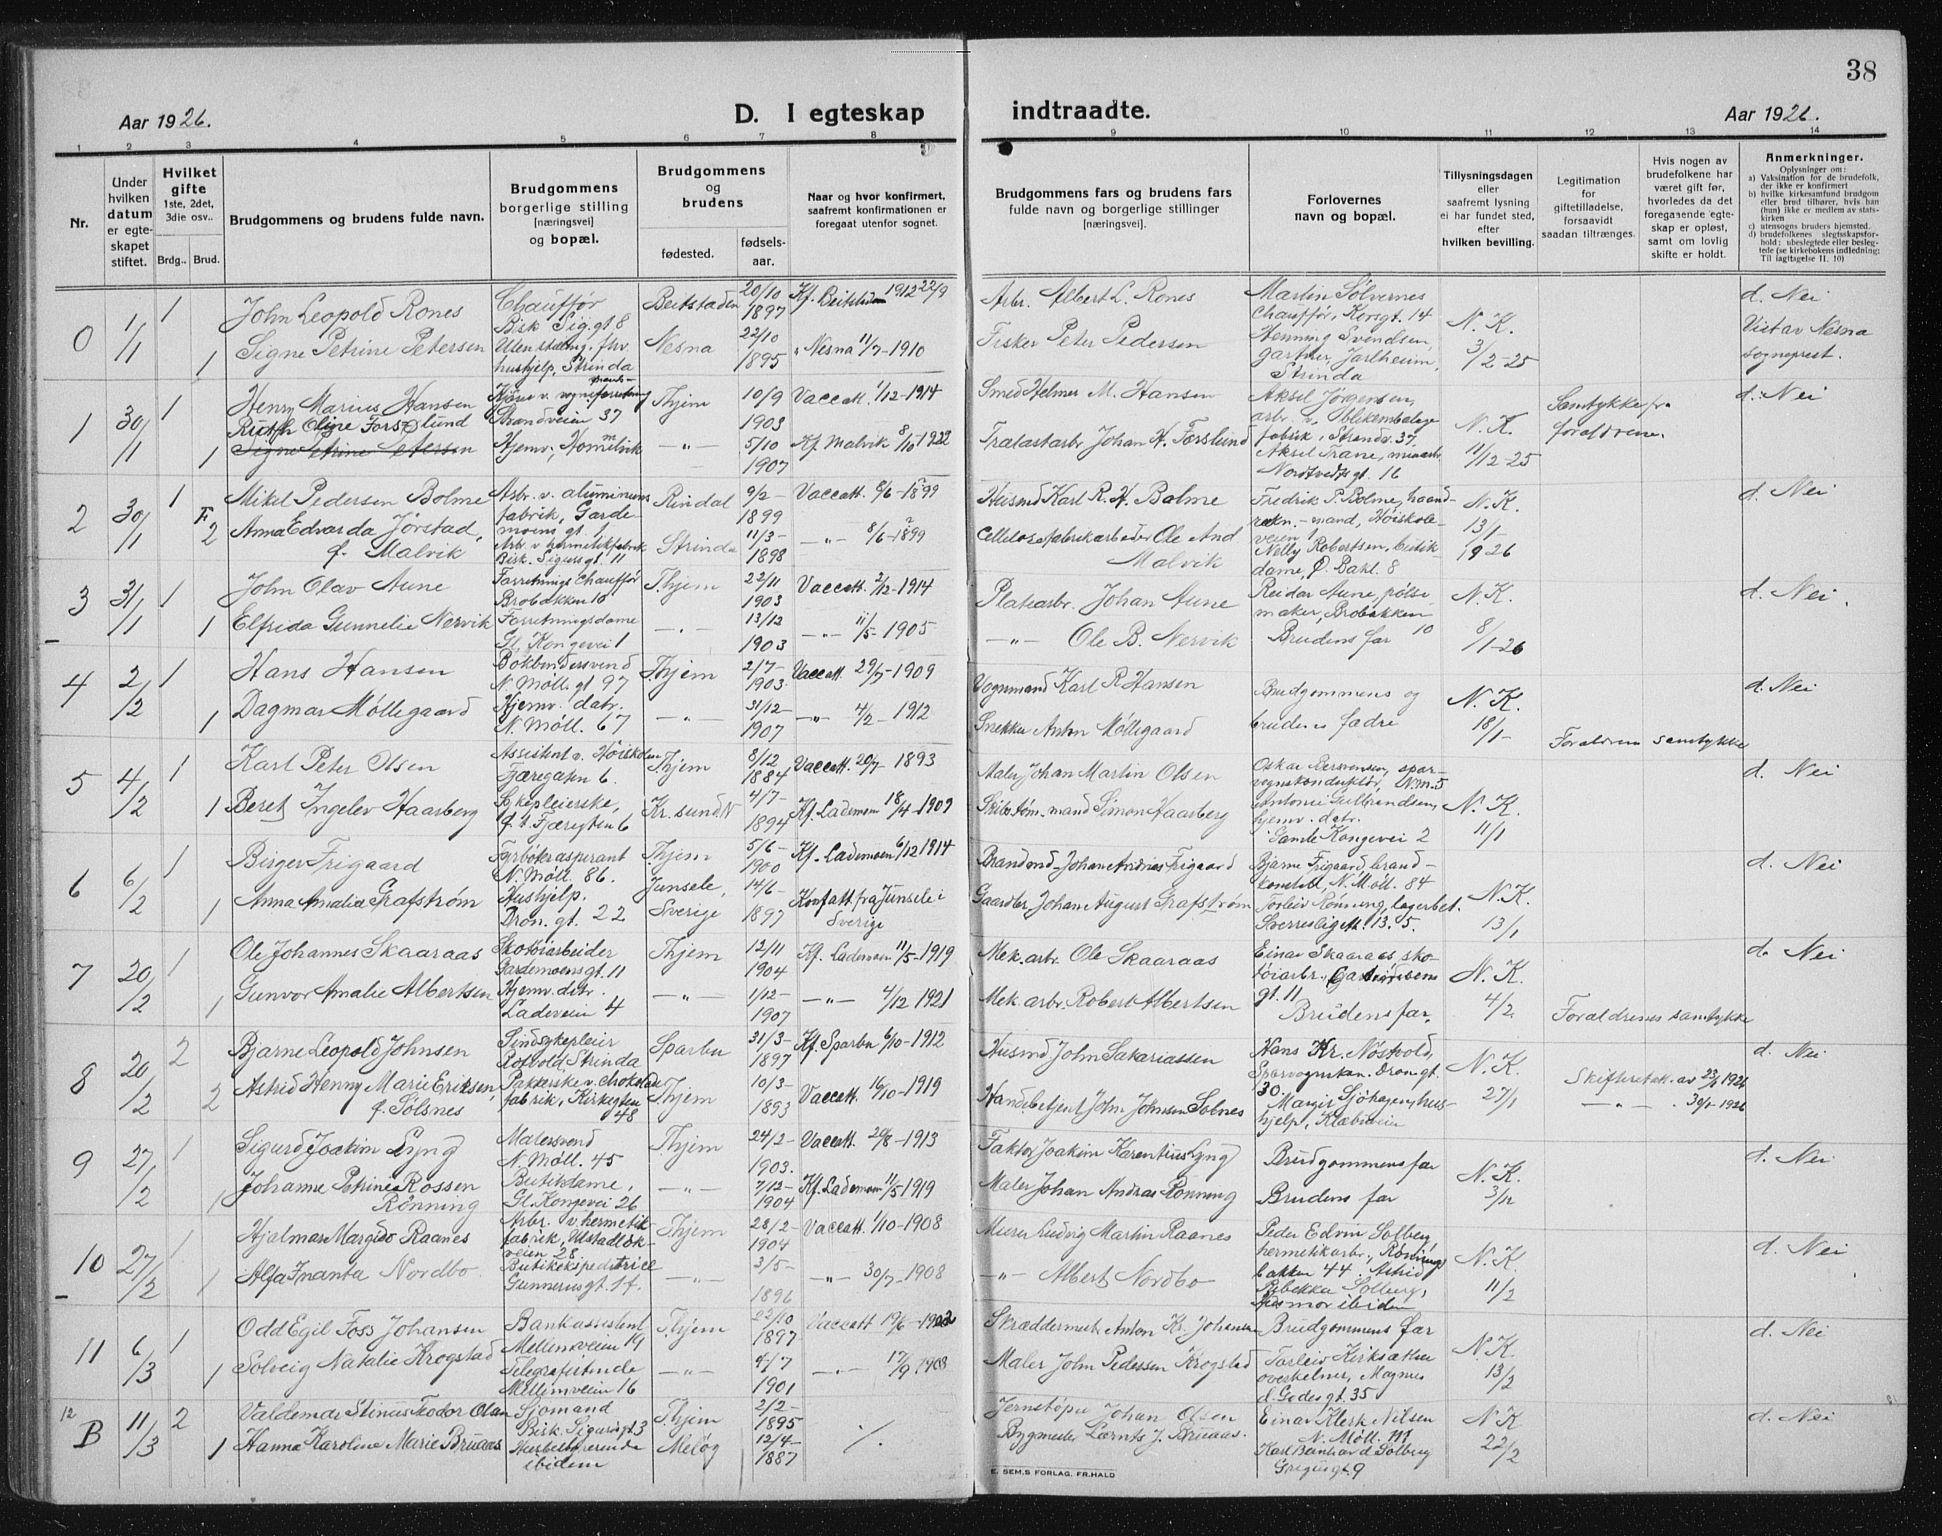 38
Aar 1926.
D. I egteskap
indtraadte.
Aar 1926.
1 2 3 4 5 6 7 8 9 10 11 12 13 14
Nr.
Under hvilken datum er egteskapet stiftet.
Hvilket gifte
1ste, 2det, 3die osv..
Brdg.. Brud.
Brudgommens og brudens fulde navn.
Brudgommens borgerlige stilling
[næringsvei]
og bopæl.
Brudgommens og brudens
fødested.
fødsels-aar.
Naar og hvor konfirmert,
saafremt konfirmationen er
foregaat utenfor sognet.
Brudgommens fars og brudens fars
fulde navn og borgerlige stillinger
[næringsvei].
Forlovernes
navn og bopæl.
Tillysningsdagen
eller
saafremt lysning
ei har fundet sted,
efter
hvilken bevilling.
Legitimation
for
giftetilladelse,
forsaavidt
saadan tiltrænges.
Hvis nogen av
brudefolkene har
været gift før,
hvorledes da det
foregaaende egte-
skap er opløst,
samt om lovlig
skifte er holdt.
Anmerkninger.
Oplysninger om:
a) Vaksination for de brudefolk,
der ikke er konfirmert
b) hvilke kirkesamfund brudgom
eller brud tilhører, hvis han
(hun) ikke er medlem av stats-
kirken
c) utensogns bruders hjemsted.
d) brudefolkenes slegtsskapsfor-
hold: ubeslegtede eller besleg-
tede (se kirkebokens indledning;
Til iagttagelse II, 10)
0 1/1 1 John Leopold Rones Chauffør Bisk. Sig.gt 8 Beitstaden 20/10 1897 Kf. Beitstaden 1912 22/9 Arbr. Albert L. Rones Martin Sølvernes Chauffør, Kongt. 14 N.K. 3/2-25 d. Nei
1 Signe Petrine Petersen Uten stilling, fhv hushjelp, Strinda Nesna 22/10 1895 " Nesna 11/7-1910 Fisker Peter Pedersen Henning Svendsen, gartner, Jarlheim, Strinda Viet av Nesna sogneprest.
1 30/1 1 Henry Marius Hansen Kjører v. vognmandsforretning Strandveien 37 Thjem 10/9 1903 Vaccatt. 1/12-1914 Smed Helmer M. Hansen Aksel Jørgensen, arb. v. blikemballage fabrik, Strandv. 37. N.K. 11/12-25 Samtykke fra forældrene. d. Nei
1 Ruth Oline Forslund Signe Petrine Petersen Hjemv., Hommelvik -"- 5/10 1907 Kf. Malvik 8/10 1922 Trælastarbr. Johan H. Forslund Aksel Trane, murarb. Nordtvedtsgt. 16
2 30/1 1 Mikal Pedersen Bolme Arbr. v. aluminiumsfabrik, Gardemoens gt. 1 Rindal 9/2- 1899 Vaccatt. 8/6-1899 Fredrik P. Bolme, haandrækn.-mand, Høiskoleveien 1 N.K. 13/1-1926 d. Nei
F 2 Anna Edvarda Jørstad, f. Malvik Arb. v. hermetikfabrik Bisk. Sigurs gt. 11 Strinda 11/3- 1898 -"- 8/6-1899 Cellulosefabrikarbeider Ole And Malvik Nelly Robertsen, butikdame, Ø. Bakl. 8
3 31/1 1 John Olav Aune Forretnings Chauffør Brobakken 10 Thjem 22/11 1903 Vaccatt. 2/12-1914 Platearbr. Johan Aune Reidar Aune, pølsemaker, Brobakken 10 N.K. 8/1-26 d. Nei.
1 Elfrida Gunnelie Nervik Forretningsdame Gl. Kongevei 1 -"- 13/12 1903 -"- 11/5-1905 -"- Ole B. Nervik Brudens far
4 2/2 1 Hans Hansen Bokbindersvend N. Møll. gt 97 Thjem 2/7- 1903. Vaccatt. 29/7-1909 Vognmand Karl P. Hansen Brudgommens og brudens fædre N.K. 18/1- d. Nei
1 Dagmar Møllegaard Hjemv. datr. N. Møll. 67 -"- 31/12- 1907 -"- 4/2-1912 Snekker Anton Møllegaard
Forældrene samtykke
5 4/2 1 Karl Peter Olsen Assistent v. Høiskolen Fjæregaten 6. Thjem 8/12 1884 Vaccatt. 20/7-1893 Maler Johan Martin Olsen Oskar Iversensen, sporvognskonduktør, N.K. 11/1 d. Nei
1 Beret Ingelev Haarberg Sykepleierske, f. t. Fjæregten 6 Kr.sund N 4/7- 1894 Kf. Lademoen 18/4-1909 Skibstøm.mand Simon Haarberg Antonie Gulbrandsen, hjemv. datr. Gamle Kongevei 2
6 6/2 1 Birger Frigaard Fyrbøteraspirant N. Møll. 86. Thjem 5/6- 1900 Kf. Lademoen 6/12 1914 Brandmd. Johan Andreas Frigaard Bjarne Frigaard brandkonstabl, N. Møll. 84 N.K. 13/1 d. Nei
1 Anna Amalia Grafstrøm Hushjelp. Dron. gt. 22 Junsele, Sverige 14/6- 1897 Konf.att. fra Junsele i Sverige Gaardbr. Johan August Grafstrøm Torleiv Rønning, lagerbet. Sverresligetn. 13.5.
7 20/2 1 Ole Johannes Skaaraas Skotøiarbeider Gardemoensgt. 11 Thjem 12/11 1904 Kf. Lademoen 11/5-1919 Mek.arbr. Ole Skaaraas Einar Skaaraas, skotøiarbr., gt. 11 N.K. 4/2 d. Nei
1 Gunvor Amalie Albertsen Hjemv. datr. Ladeveien 4 -"- 1/12- 1907 -"- 4/12 1921 Mek.arbr. Robert Albertsen Brudens far, Forældrenes samtykke
8 20/2 2 Bjarne Leopold Johnsen Sindssykepleier Rotvold Strinda Sparbu 31/3- 1897 Kf. Sparbu 6/10-1912 Husmd John Sakariassen Hans Kr. Nøstvold, Sporvognskon. Dron.gt. 30. N.K. 27/1 Skifteretsatt. av 23/1 1926 d. Nei
2 Astrid Henny Marie Eriksen, f. Sølsnes Pakkerske v. chokoladefabrik, Kirkegten 48 Thjem 10/3- 1893 Vaccatt. 16/10-1919 Handelsbetjent John Johnsen Solnes Margit Sjøhagen, hushjelp, Klæbuveien -"- 30/1-1926
9 27/2 1 Sigurd Joakim Lyng Malersvend N. Møll. 45 Thjem 24/2- 1903. Vaccatt. 29/8-1913 Faktor Joakim Karentius Lyng Brudgommens far N.K. 3/2 d. Nei
1 Johanne Petrine Rossen Rønning Butikdame, Gl. Kongevei 26 -"- 7/12- 1904 Kf. Lademoen 11/5 1919 Maler Johan Andreas Rønning Brudens far
10 27/2 1 Hjalmar Margido Raanes Arbr. v. hermetikfabrik, Ulstadløkveien 28 Thjem 28/2- 1904 Vaccatt. 1/10-1908 Murer Ludvig Martin Raanes Peder Edvin Solberg, hermetikarbr., Rønningsbakken 44. N.K. 11/2 d. Nei
1 Alfa Jnanta Nordbo Butikekspeditrice Gunnerusgt. 14. -"- 3/5- 1896 -"- 30/7-1908 -"- Albert Nordbo Astrid Rebekka Solberg, Husmor ibidem
11 6/3 1 Odd Egil Foss Johansen Bankassistent Mellemveien 19 Thjem 22/10 1897 Vaccatt 19/6-1902 Skræddermest. Anton Kr. Johansen Brudgommens far N.K. 13/2 d. Nei
1 Solveig Natalie Krogstad Telegrafistinde Mellemveien 16 -"- 4/7 1901 -"- 17/9 1903 Maler John Pedersen Krogstad Torleiv Kirksæther overkelner, Magnus d. Godes gt. 35
12 B 11/3 2 Valdemar Stinius Teodor Olsen Sjømand Bisk. Sigursgt 3 Thjem 2/2- 1895 ./. Jernstøper Johan Olsen Einar Klerk Nilsen N. Møll. 111 N.K 22/2 d. Nei
1 Hanna Karoline Marie Bruaas Husbestyrerinde ibidem Meløy 12/4- 1887 Bygmester Lornts J. Bruaas. Karl Bernhard Solberg Gregusgt. 9
E. SEM,S FORLAG, FR.HALD